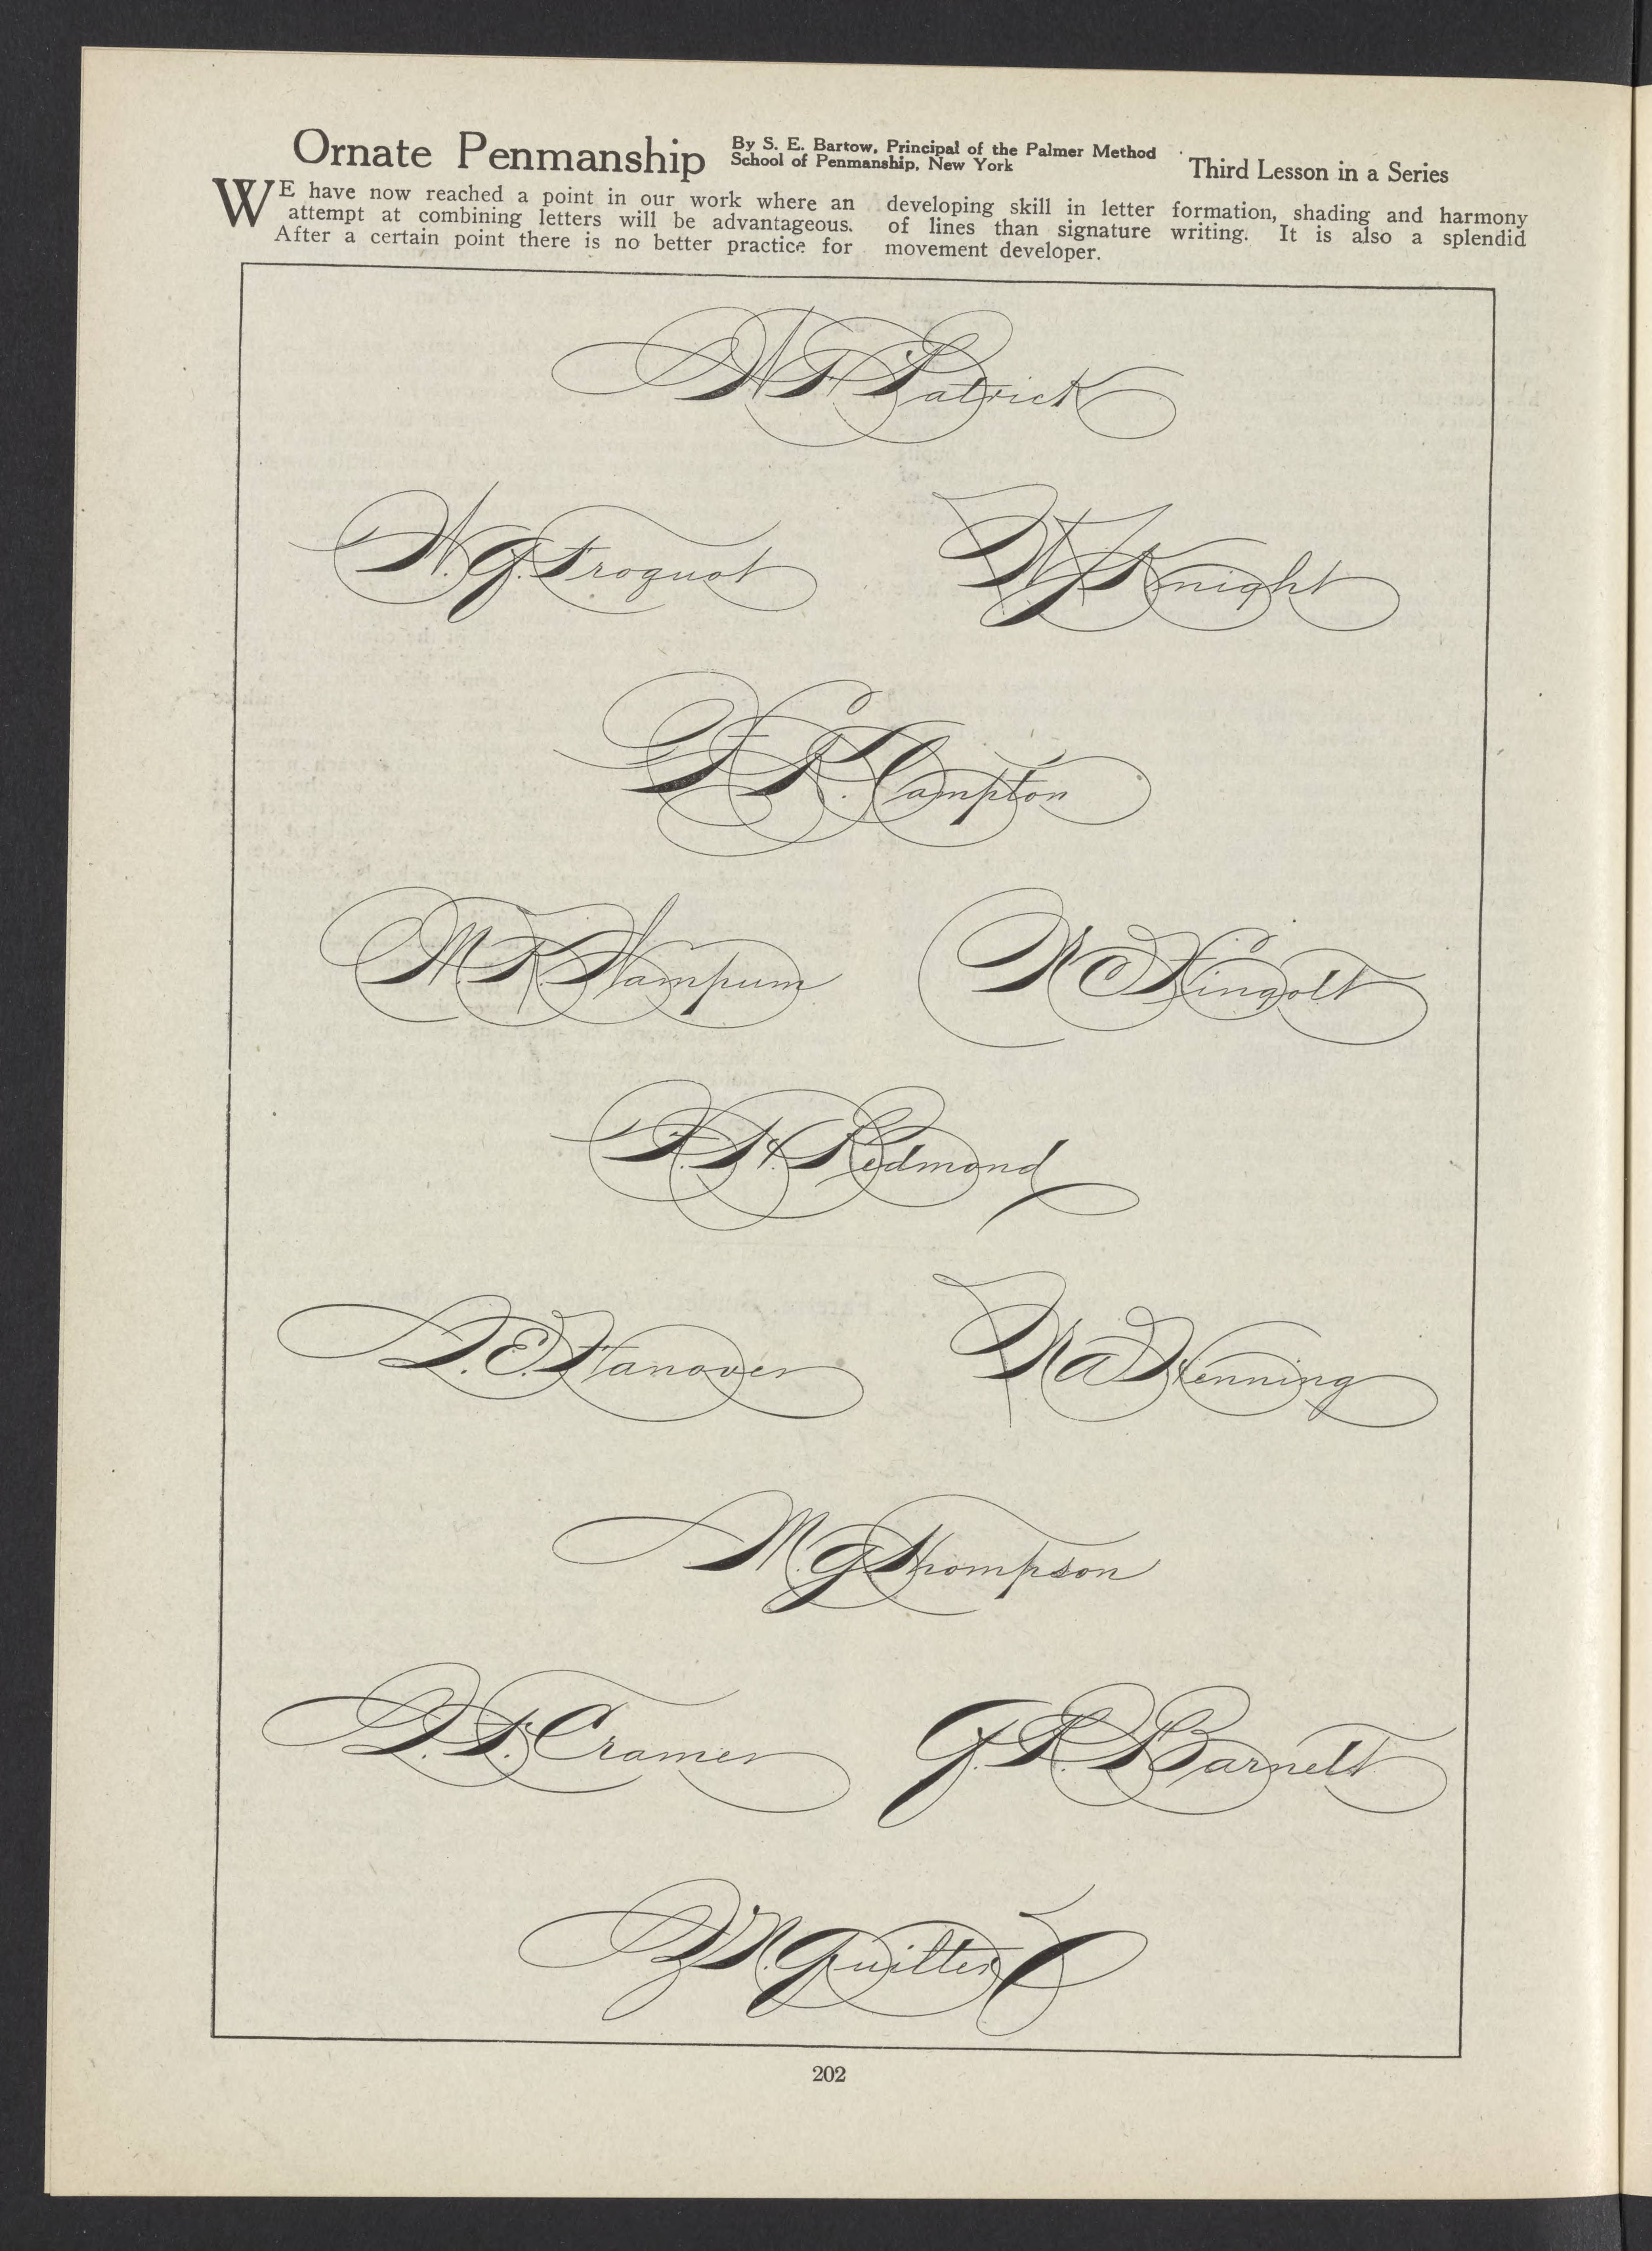 Ornate Penmanship
By S. E. Bartow, Principal of the Palmer Method
School of Penmanship, New York
Third Lesson in a Series
WE have now reached a point in our work where an
attempt at combining letters will be advantageous.
After a certain point there is no better practice for
developing skill in letter formation, shading and harmony
of lines than signature writing. It is also a splendid
movement developer.
Patrick
W. G. Froquot
Knight
Campton
M. K. Wampum
W C Kingolt
Redmond
D. E. Hanover
W A Henning
M. G. Thompson
Cramer
G. R. Barnett
Guilter
202